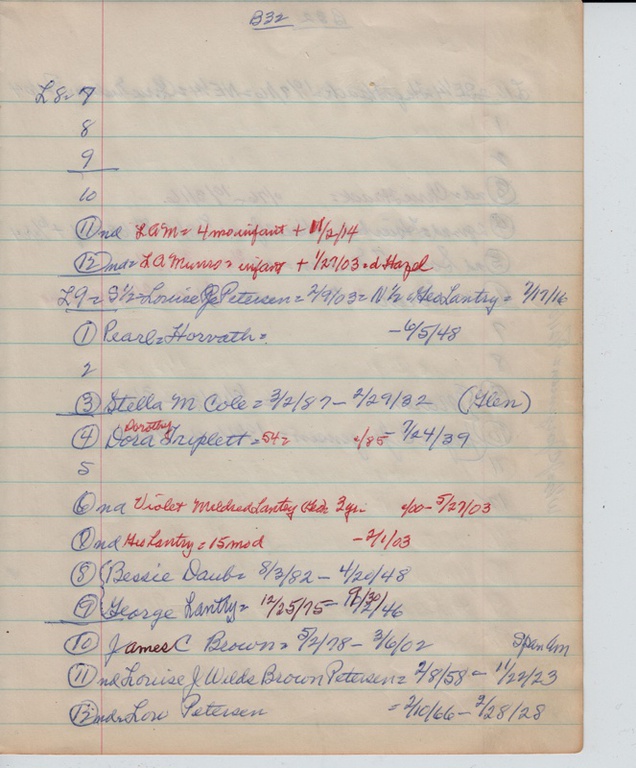 B32
L8= 7
8
9
10
(11) nd LAM = 4 mo infant + 11/2/14
(12) nd = LA Munro = infant + 1/27/03 = d Hazel
L9 = S½ = Louise J Petersen = 2/9/03 = N½ = Geo Lantry = 7/17/16
(1) Pearl = Horvath = - 6/5/48
2
(3) Stella M Cole = 3/2/87 - 2/29/32 (Glen)
Dorothy
(4) Dora Triplett = 54 = /85 - 7/24/39
5
(6) nd Violet Mildred Lantry 3 yr /00 - 5/27/03
(7) nd Geo Lantry = 15 mo d - 2/1/03
(8) Bessie Daub = 8/3/82 - 4/20/48
(9) George Lantry = 12/25/75 - /46
(10) James C Brown = 5/2/78 - 3/6/02 Span Am
(11) nd Louise J Wilds Brown Petersen = 2/8/58 - 11/22/23
(12) nd = Lou Petersen = 2/10/66 - 2/28/28